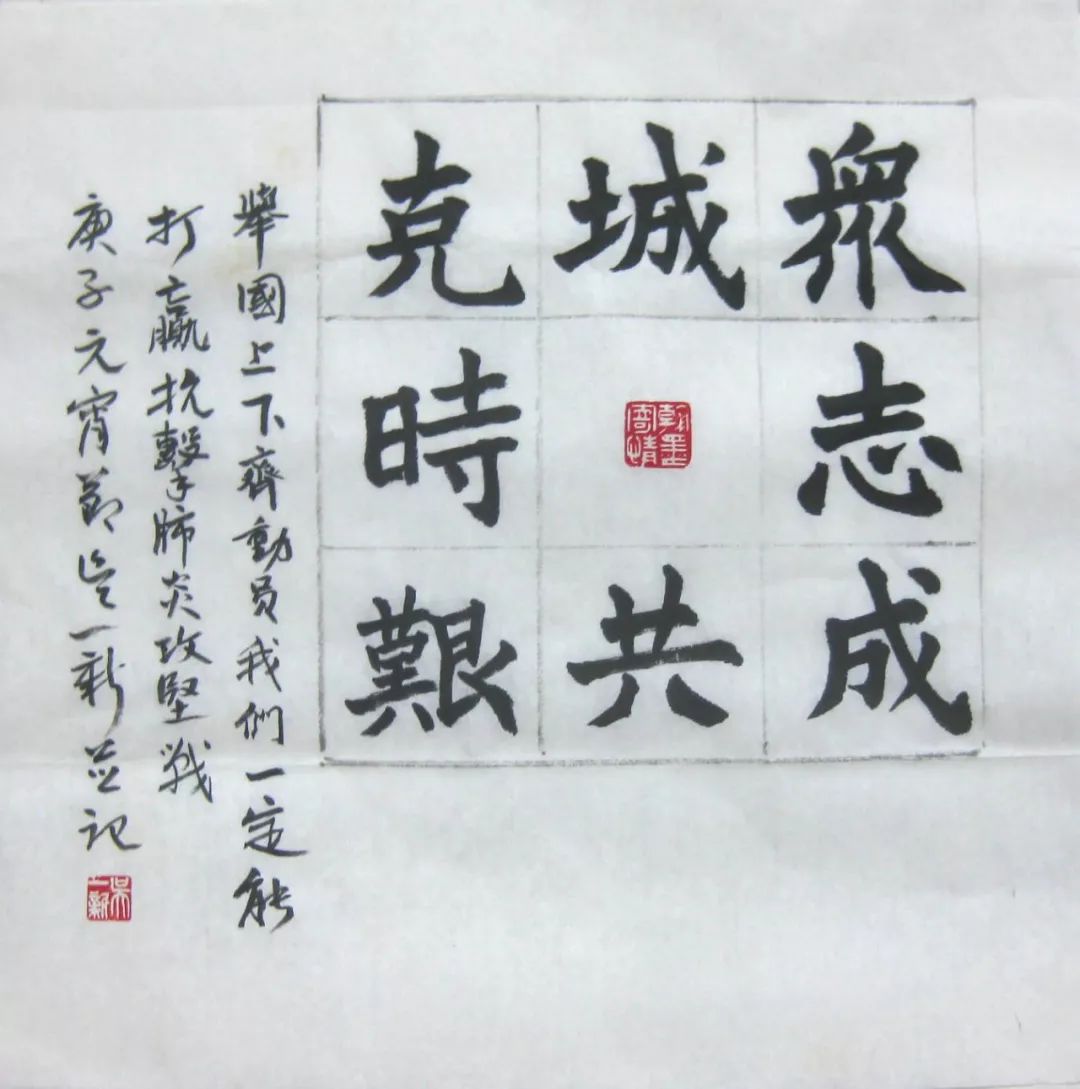 眾志成
城共
克時艱
翰墨寄情
舉國上下齊動員我們一定能
打贏抗擊肺炎攻堅戰
庚子元宵節吳一新並記
吳一新